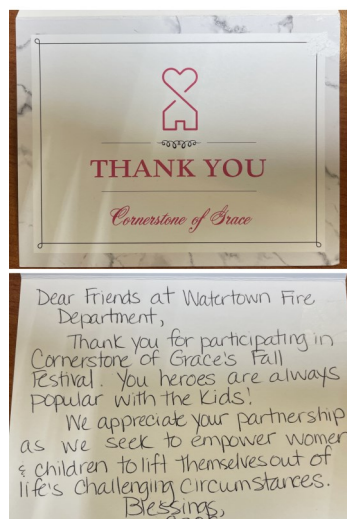 THANK YOU
Cornerstone of Grace
Dear Friends at Watertown Fire
Department,
Thank you for participating in
Cornerstone of Grace's Fall
Festival. You heroes are always
popular with the kids!
We appreciate your partnership
as we seek to empower women
& children to lift themselves out of
life's challenging circumstances.
Blessings,